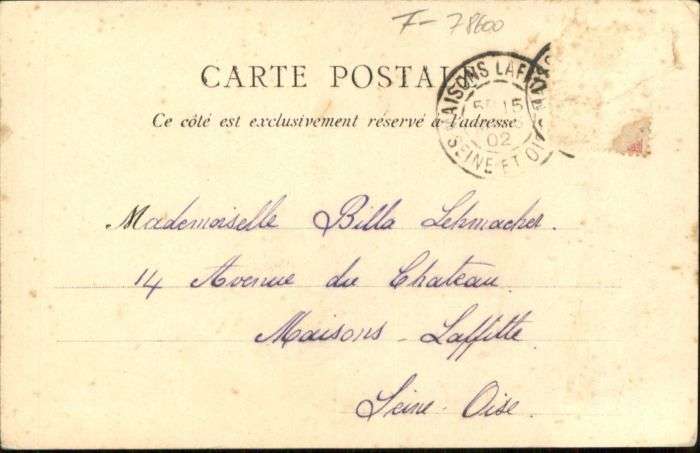 F-78600
CARTE POSTALE
Ce côté est exclusivement réservé à l'adresse
MAISONS LAFFI
15
02
SEINE-ET-OI
Mademoiselle Billa Lehmacher.
14 Avenue du Chateau.
Maisons-Laffitte.
Seine-Oise.